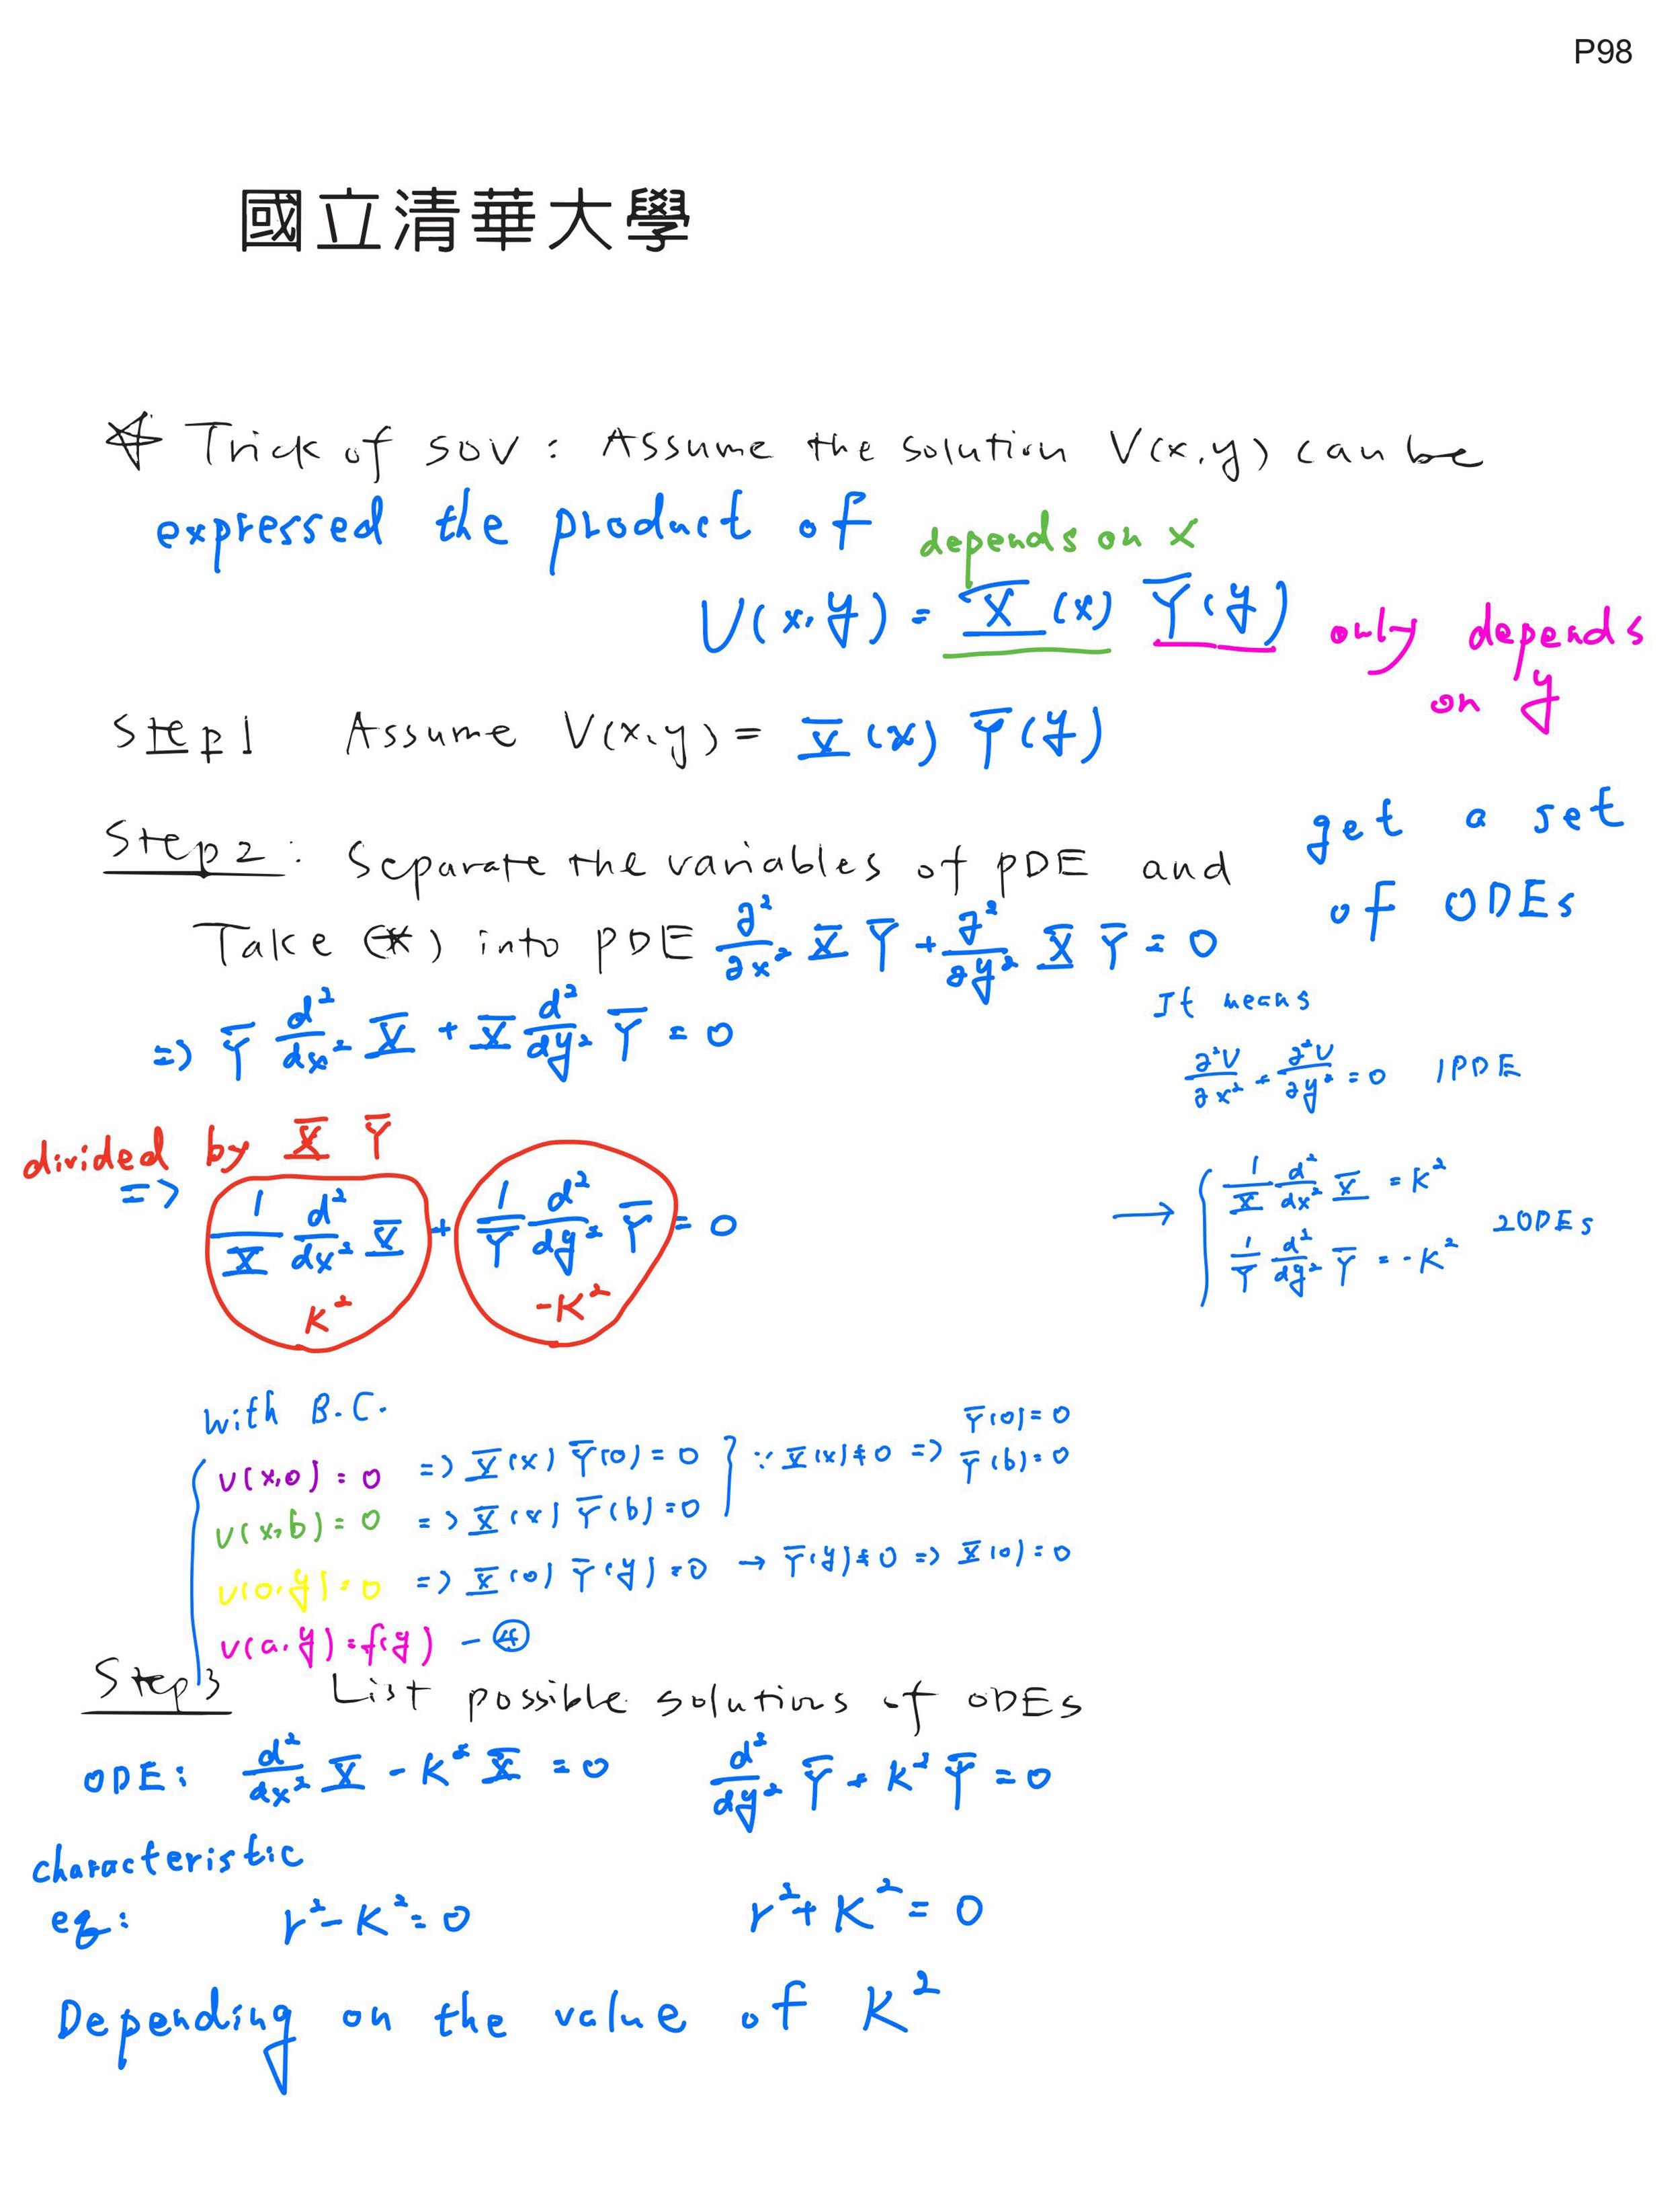 P98
國立清華大學
☆ Trick of SOV : Assume the solution V(x,y) can be
expressed the product of
depends on x
V(x,y) = X(x) Y(y)
only depends
on y
Step1 Assume V(x,y) = X(x) Y(y)
Step2 : Separate the variables of PDE and get a set
of ODEs
Take (*) into PDE ∂²/∂x² X Y + ∂²/∂y² X Y = 0
=> Y d²/dx² X + X d²/dy² Y = 0
It means
∂²V/∂x² + ∂²V/∂y² = 0 1PDE
divided by X Y
=> 1/X d²/dx² X + 1/Y d²/dy² Y = 0
K² -K²
→ { 1/X d²/dx² X = K²
1/Y d²/dy² Y = -K² 2ODEs
with B.C.
V(x,0) = 0 => X(x) Y(0) = 0 } ∵ X(x) ≠ 0 => Y(0) = 0
Y(b) = 0
V(x,b) = 0 => X(x) Y(b) = 0
V(0,y) = 0 => X(0) Y(y) = 0 → Y(y) ≠ 0 => X(0) = 0
V(a,y) = f(y) - ④
Step3 List possible solutions of ODEs
ODE: d²/dx² X - K² X = 0 d²/dy² Y + K² Y = 0
characteristic
eq: r² - K² = 0 r² + K² = 0
Depending on the value of K²